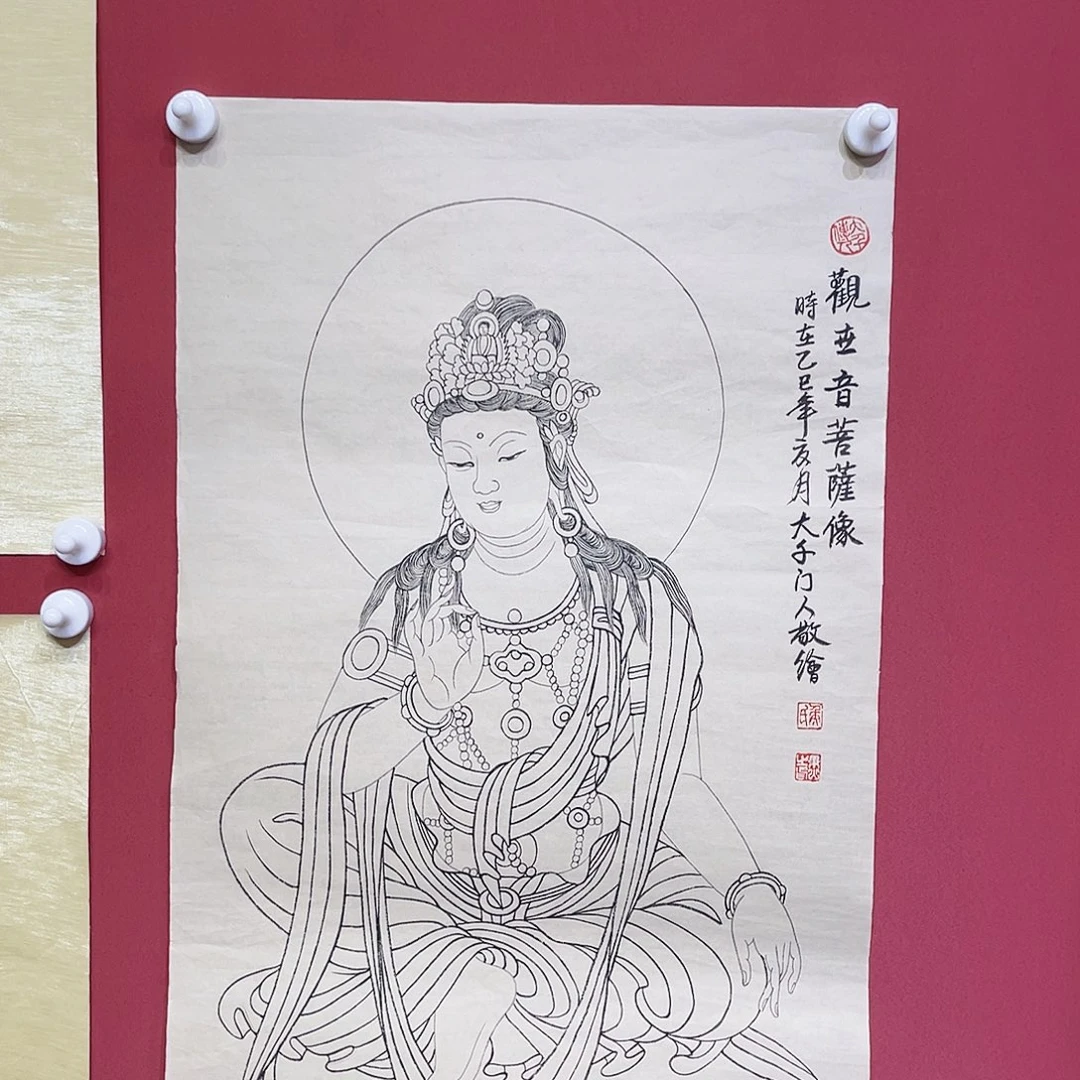 觀世音菩薩像
時在乙巳年亥月大千门人敬繪